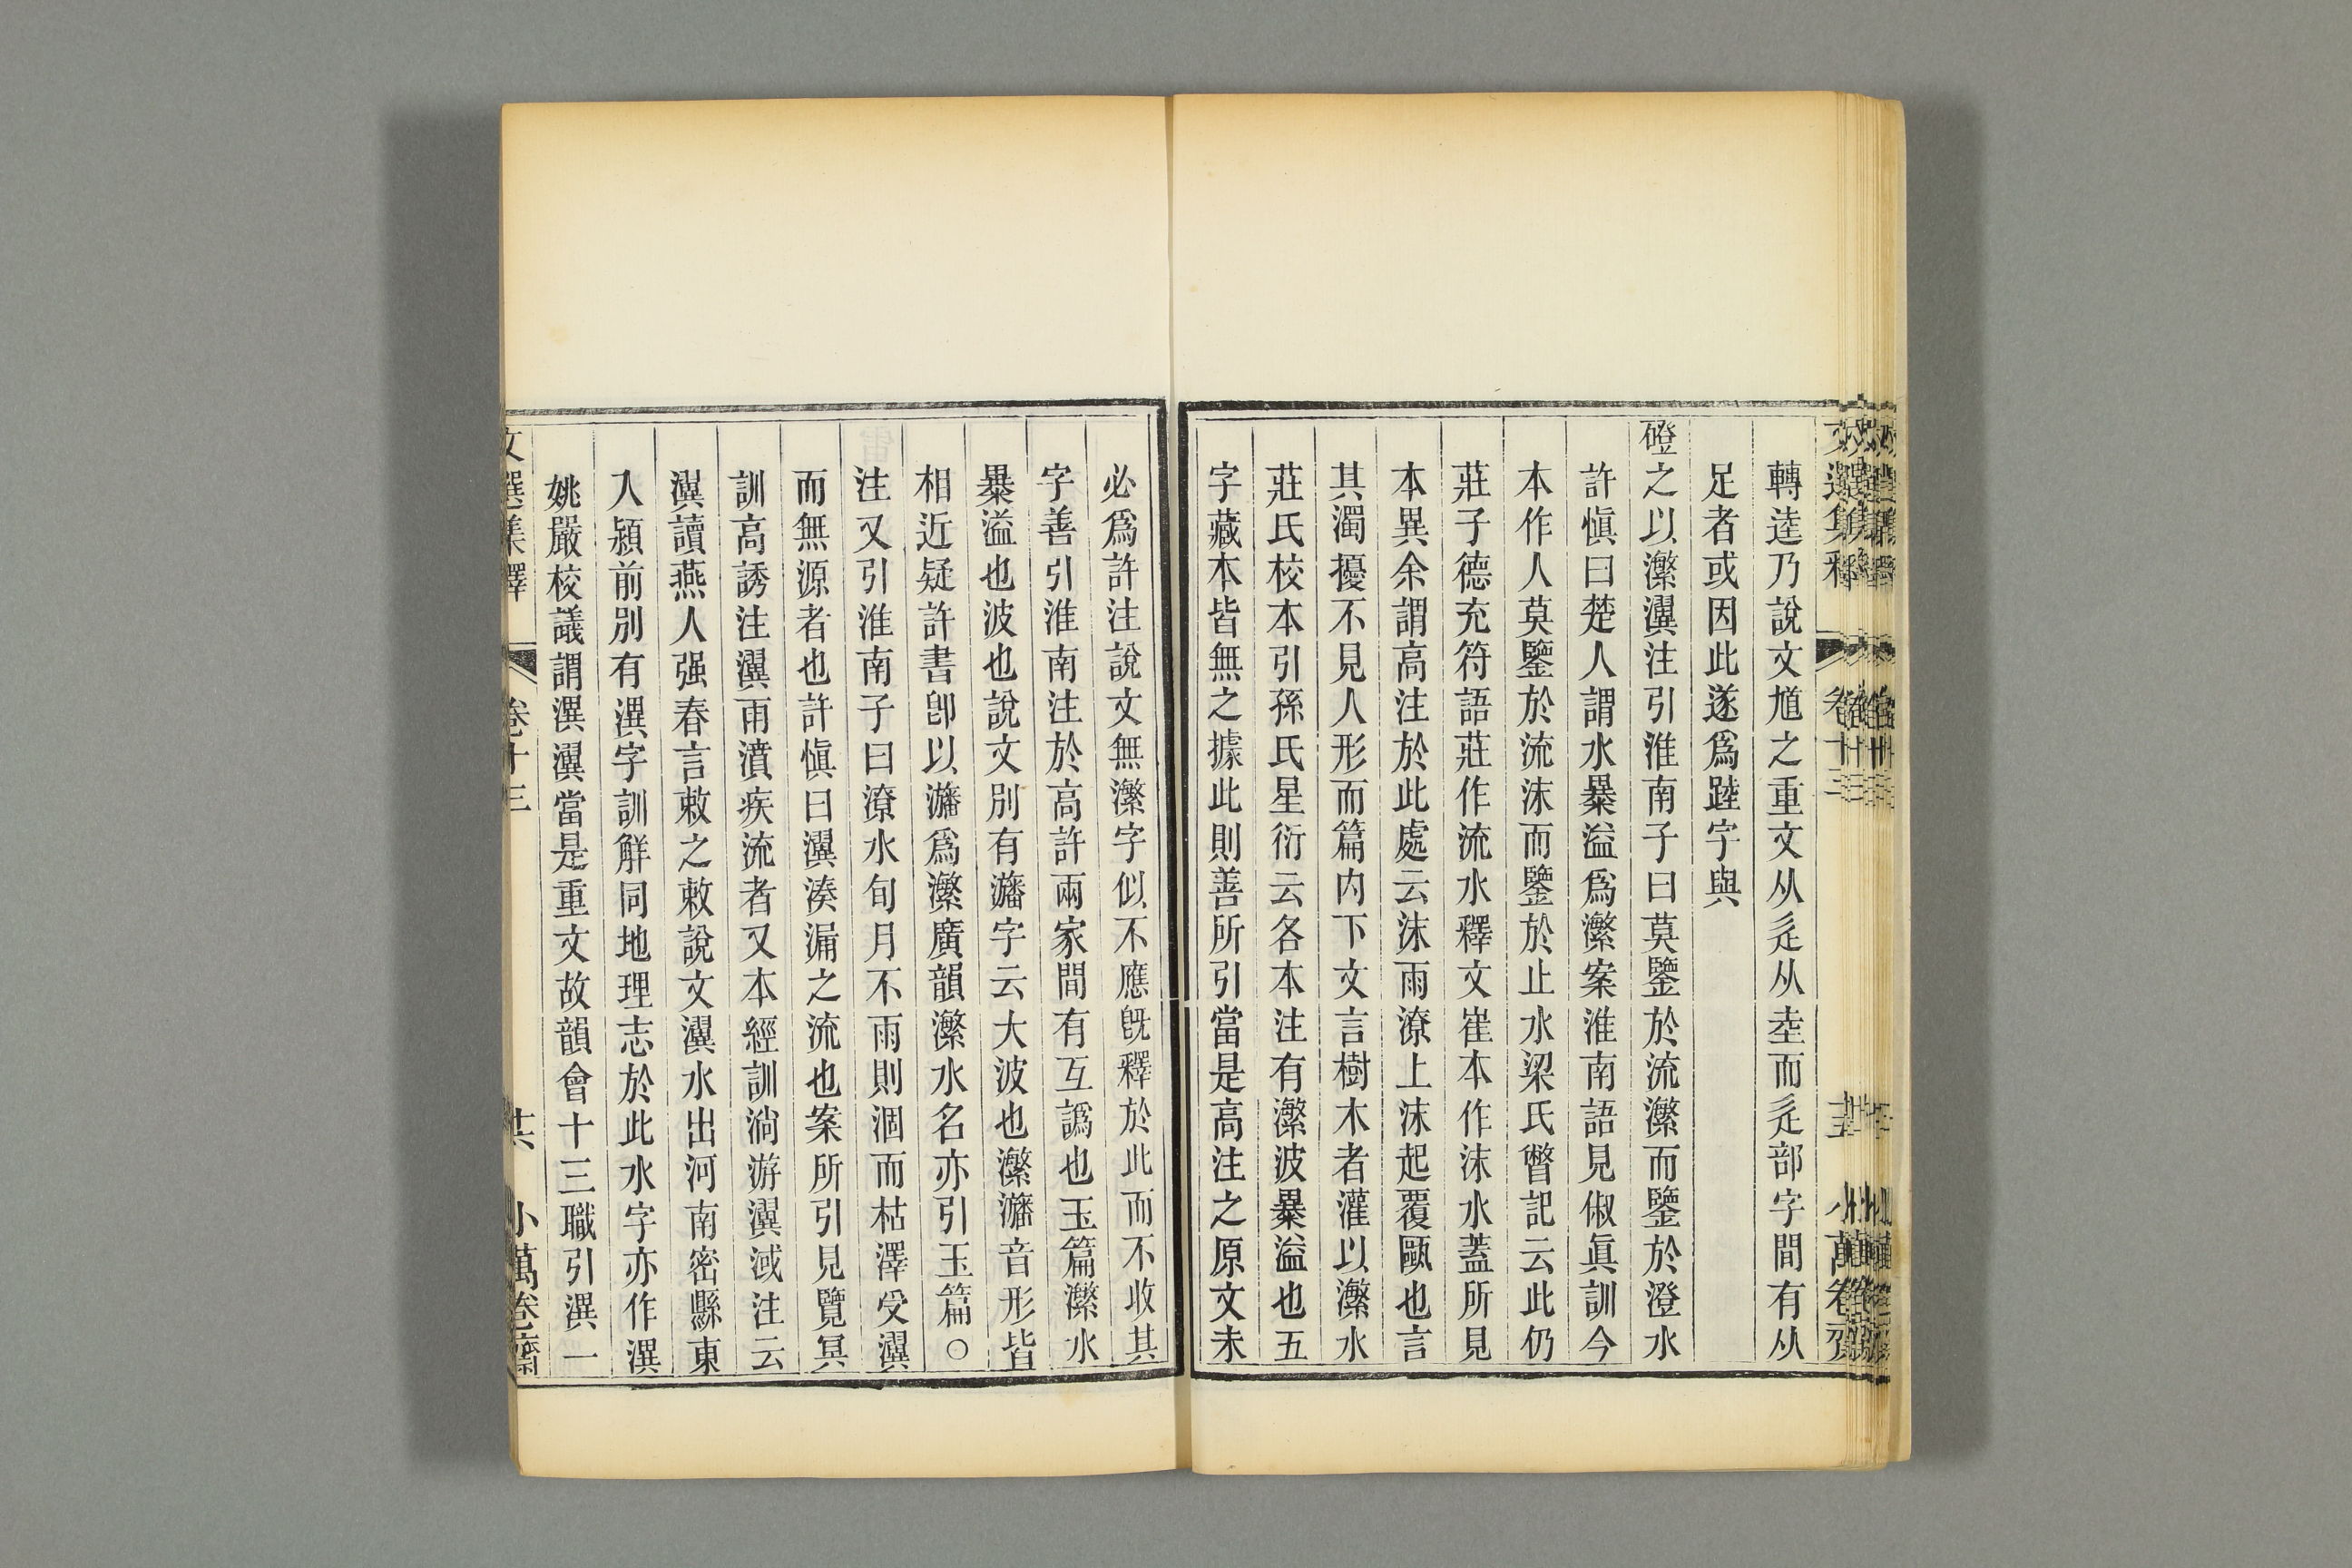 轉逵乃說文馗之重文从辵从坴而辵部字間有从
足者或因此遂爲踛字與
磴之以瀿瀷注引淮南子曰莫鑒於流瀿而鑒於澄水
許愼曰楚人謂水暴溢爲瀿案淮南語見俶眞訓今
本作人莫鑒於流沫而鑒於止水梁氏瞥記云此仍
莊子德充符語莊作流水釋文崔本作沫水蓋所見
本異余謂高注於此處云沫雨潦上沫起覆甌也言
其濁擾不見人形而篇內下文言樹木者灌以瀿水
莊氏校本引孫氏星衍云各本注有瀿波暴溢也五
字藏本皆無之據此則善所引當是高注之原文未
必爲許注說文無瀿字似不應旣釋於此而不收其
字善引淮南注於高許兩家間有互譌也玉篇瀿水
暴溢也波也說文別有瀋字云大波也瀿瀋音形皆
相近疑許書卽以瀋爲瀿廣韻瀿水名亦引玉篇○
注又引淮南子曰潦水旬月不雨則涸而枯澤受瀷
而無源者也許愼曰瀷湊漏之流也案所引見覽冥
訓高誘注瀷雨瀆疾流者又本經訓淌游瀷淢注云
瀷讀燕人强春言敕之敕說文瀷水出河南密縣東
入潁前別有潩字訓解同地理志於此水字亦作潩
姚嚴校議謂潩瀷當是重文故韻會十三職引潩一
文選集釋 卷十三 廿六 小萬卷齋